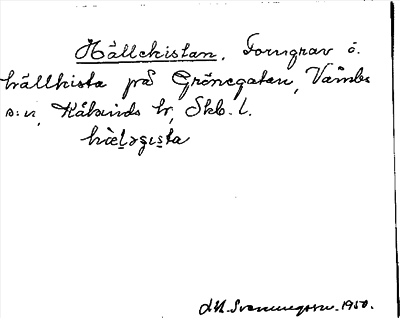 Hällekistan. Forngrav o.
hällkista på Grönegatan, Våmbs
s:n, Kåkinds hr, Skb. l.
hæl̥əgis̥ta
Svenungsson. 1950.